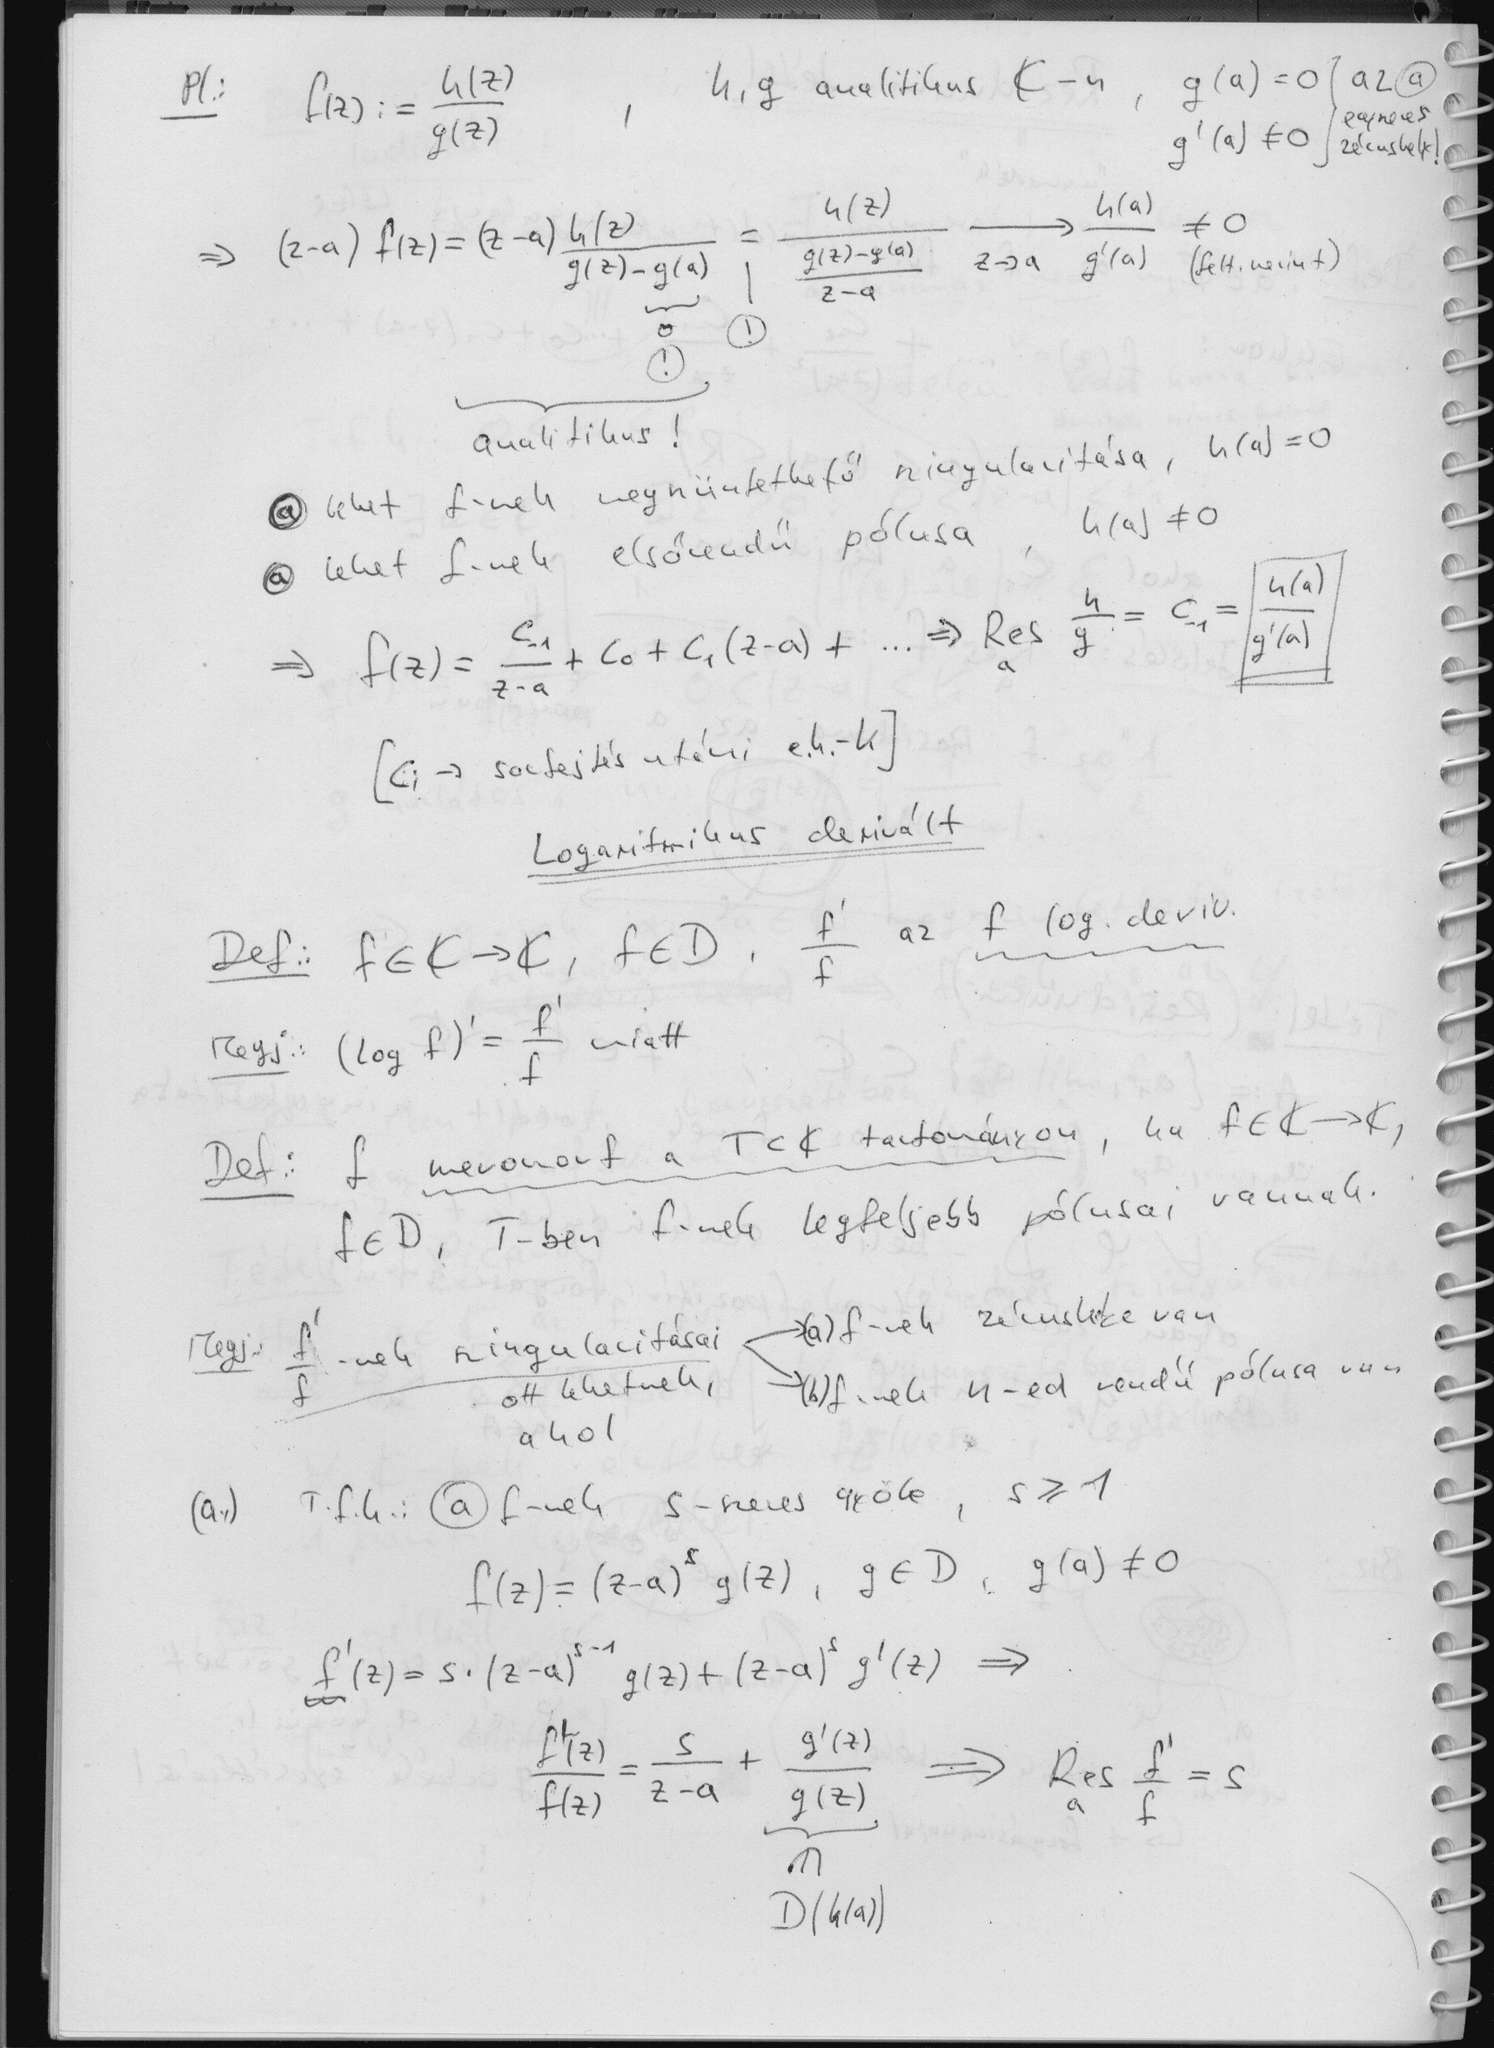 Pl.: f(z) := h(z)/g(z) , h, g analitikus ℂ-n , g(a) = 0 } az ⓐ
g'(a) ≠ 0 } egyszeres zérushely!
⇒ (z-a) f(z) = (z-a) h(z)/(g(z) - g(a)) = h(z)/((g(z)-g(a))/(z-a)) →(z→a) h(a)/g'(a) ≠ 0 (felt. szerint)
0 (!) (!)
analitikus!
ⓐ lehet f-nek megszüntethető szingularitása, h(a) = 0
ⓐ lehet f-nek elsőrendű pólusa , h(a) ≠ 0
⇒ f(z) = c₋₁/(z-a) + c₀ + c₁(z-a) + ... ⇒ Res_a h/g = c₋₁ = h(a)/g'(a)
[cᵢ → sorfejtés utáni e.h.-k]
Logaritmikus derivált
Def.: f ∈ ℂ → ℂ, f ∈ D, f'/f az f log. deriv.
Megj.: (log f)' = f'/f miatt
Def.: f meromorf a T ⊂ ℂ tartományon, ha f ∈ ℂ → ℂ,
f ∈ D, T-ben f-nek legfeljebb pólusai vannak.
Megj.: f'/f -nek szingularitásai → (a) f-nek zérushelye van
ott lehetnek, → (b) f-nek n-ed rendű pólusa van
ahol
(a.) T.f.h.: ⓐ f-nek s-szeres gyöke, s ≥ 1
f(z) = (z-a)^s g(z), g ∈ D, g(a) ≠ 0
f'(z) = s·(z-a)^(s-1) g(z) + (z-a)^s g'(z) ⇒
f'(z)/f(z) = s/(z-a) + g'(z)/g(z) ⇒ Res_a f'/f = s
⋒
D(k(a))